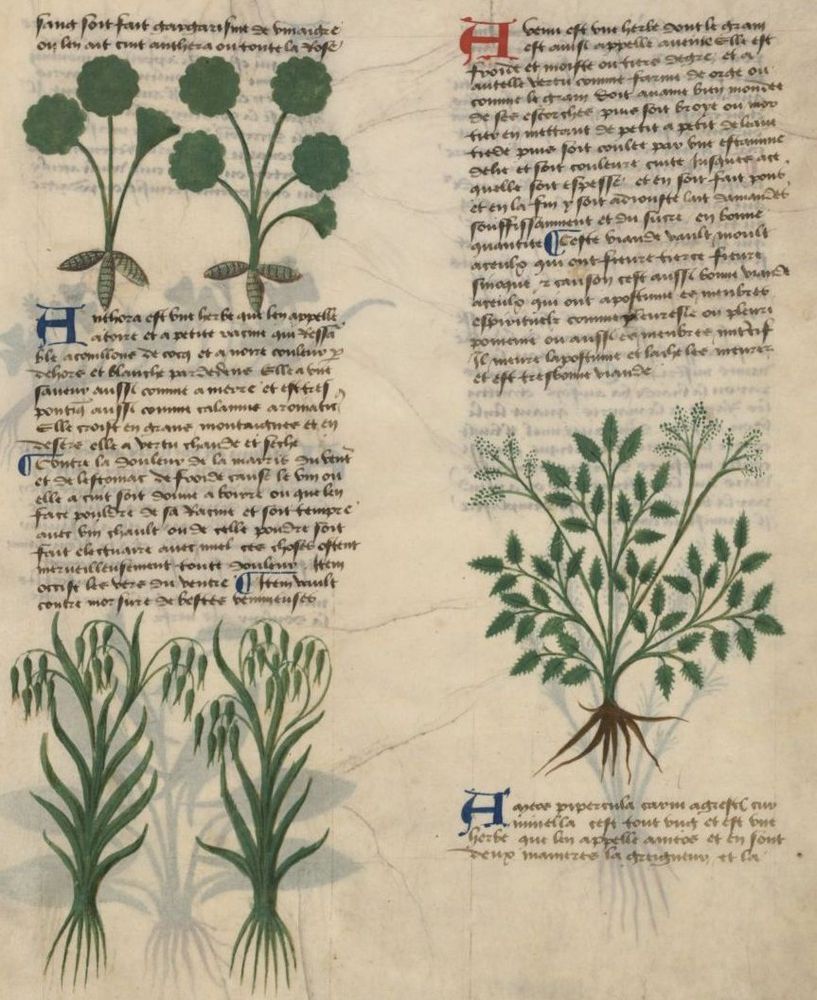 sang soit fait gargarisme de vinaigre
ou len ait cuit anthera ou toute la Rose
Anthora est vne herbe que len appelle
atoire et a petite racine qui Ressā
ble acouillons de cocq et a noire couleur p
dehors et blanche par dedens Elle a vne
saueur aussi comme amerre et est tres
pontiq̄ aussi comme calamus aromatic.
Elle croist en grans montaignes et en
desers elle a vertu chaude et seche
¶ Contre la douleur de la marris du vent
et de lestomac de froide cause le vin ou
elle a cuit soit donne a boire ou que len
face pouldre de sa Racine et soit tempre
auec vin chault ou de celle poudre soit
fait electuaire auec miel ces choses ostent
merueilleusement toute douleur Item
occist les vers du ventre ¶ Item vault
contre morsure de bestes venimeuses
Auenu est vne herbe dont le grain
est aussi appelle auene Elle est
froide et moiste ou tiers degre et a
autelle vertu comme farine de orge ou
comme le grain doit auant bien monder
de ses escorches puis soit broye ou mor
tier en mettant de petit a petit de leaue
tiede puis soit coulee par vne estamine
delie et soit couleure cuite Jusques ace
quelle soit espesse et en soit fait pout
et en la fin y soit adiouste lait damandes
souffissamment et du sucre en bonne
quantite ¶ Ceste viande vault moult
aceulx qui ont fieure tierce fieure
sinoque et causon cest aussi bonne viande
aceulx qui ont apostume es menbres
espirituelz comme pleuresie ou pleuri
pomonie ou aussi es menbres
Il meure lapostume et lache les
et est tresbonne viande
Ameos pipercula carui agreste cu
minella cest tout vng et est vne
herbe que len appelle ameos et en sont
deux manieres la greigneur et la